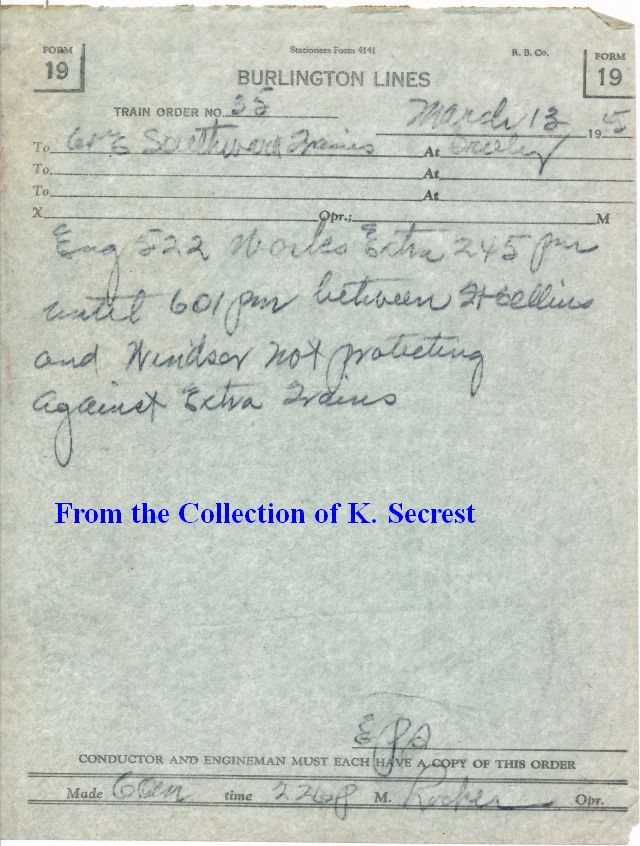 FORM 19
Stationers Form 4141
R. B. Co.
FORM 19
BURLINGTON LINES
TRAIN ORDER NO. 35
March 13 19 45
To C&E Southward Trains At Greeley
To At
To At
X Opr.; M
Eng 522 Works Extra 245 pm
until 601 pm between Ft Collins
and Windsor not protecting
against Extra Trains
From the Collection of K. Secrest
CONDUCTOR AND ENGINEMAN MUST EACH HAVE A COPY OF THIS ORDER
Made Com time 226 P M. Opr.